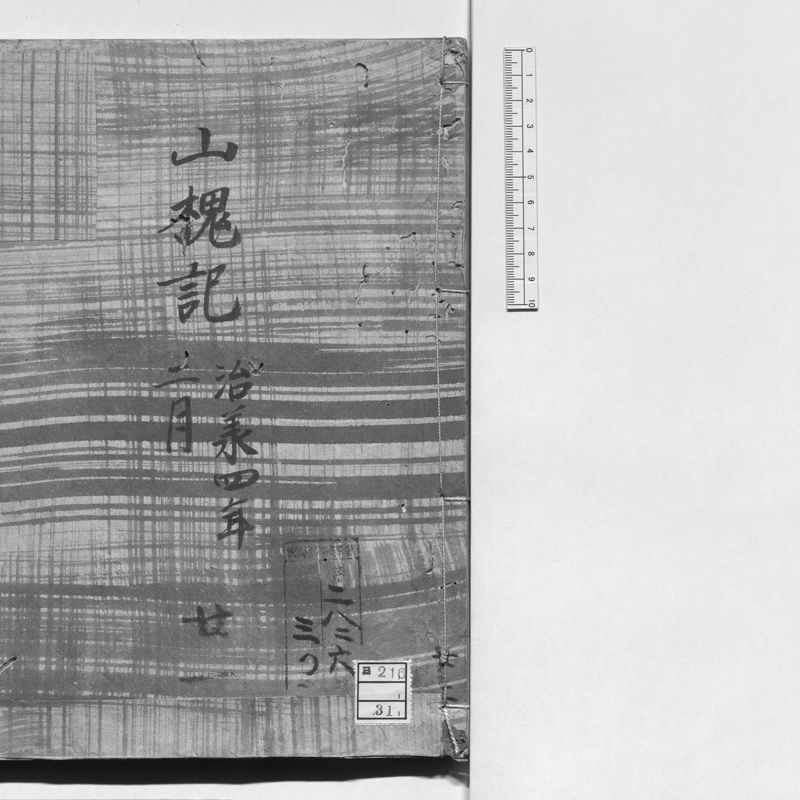 山槐記
治承四年
二月
廿
二八三六
三〇
216
31
0 1 2 3 4 5 6 7 8 9 10